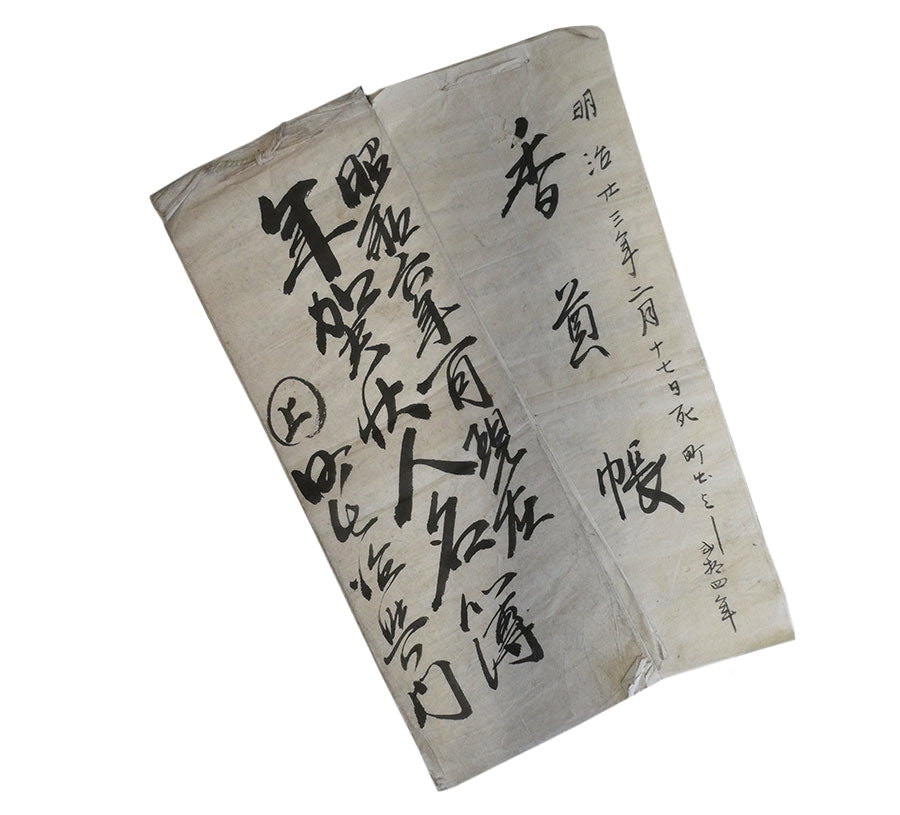 明治廿三年二月十七日死 町 弐拾四年
香奠帳
昭和六年一月現在
年賀状人名簿
上